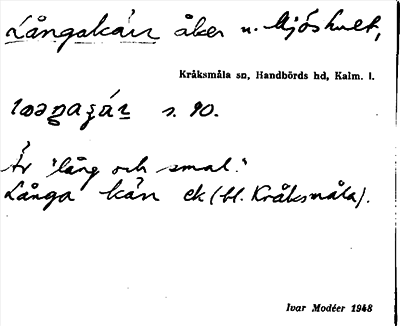 Långakärr åker u. Mjöshult,
Kråksmåla sn, Handbörds hd, Kalm. l.
s. 90.
Är "lång och smal."
Långa kärr ek (bl. Kråksmåla).
Ivar Modéer 1948